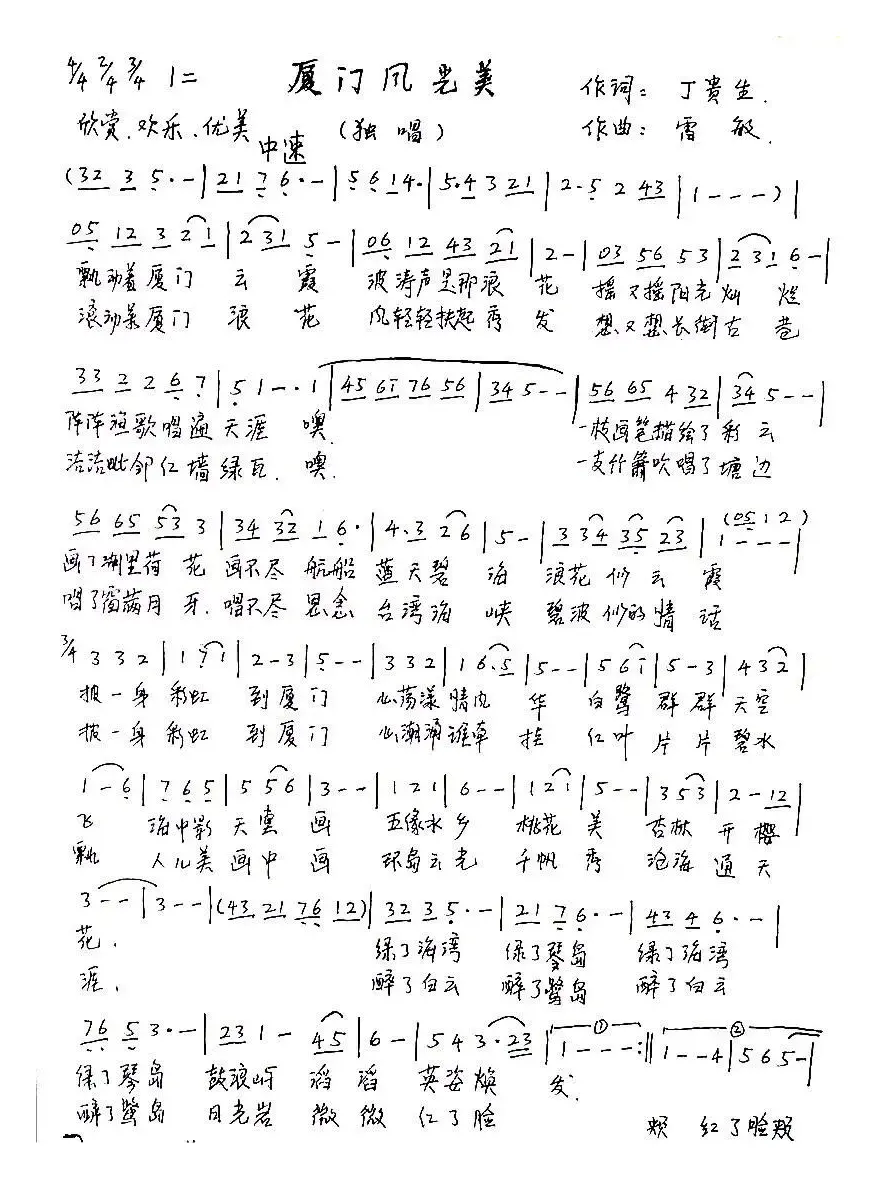 4/4 2/4 3/4 1= 厦门风光美 作词：丁贵生.
欣赏、欢乐、优美 中速 (独唱) 作曲：雷敏.
(32 3 5·-|21 7 6·-|56 14·|5·4 3 21|2·5 2 43|1---)|
05 12 3 2 1|2 31 5-|06 12 43 21|2-|03 56 53|2 31 6-|
飘动着厦门 云 霞 波涛声是那浪 花 摇又摇阳光灿 烂
滚动着厦门 浪 花 风轻轻扶起秀 发 想又想长街古 巷
33 2 2 6 7|5 1-·1|45 61 76 56|34 5--|56 65 4 32|34 5--|
阵阵渔歌唱遍天涯 噢. 一枝画笔描绘了彩云
洁洁毗邻红墙绿瓦. 噢. 一支竹箫吹唱了塘边
56 65 53 3|34 32 1 6·|4·3 2 6|5-|3 34 35 23|1---|(05 12)
画了湖里荷 花 画不尽 航船 蓝天碧 海 浪花 似 云 霞
唱了窗满月 牙. 唱不尽 思念 台湾海 峡 碧波似的情 话
3/4 3 3 2|1 1 1|2-3|5--|3 3 2|1 6·5|5--|5 6 1|5-3|4 3 2|
披一身 彩虹 到厦门 心荡漾 情风 华 白鹭 群群 天空
披一身 彩虹 到厦门 心潮涌 谁牵 挂 红叶 片片 碧水
1-6|7 6 5|5 5 6|3--|1 2 1|6--|1 2 1|5--|3 5 3|2-12|
飞 海中影 天 画 五缘水 乡 桃花 美 杏林 开 樱
飘 人儿美 画中 画 环岛云 光 千帆 秀 沧海 通 天
3--|3--|(43 21 76 12)|32 3 5·-|21 7 6·-|43 4 6·-|
花. 绿了海湾 绿了琴岛 绿了海湾
涯. 醉了白云 醉了鹭岛 醉了白云
76 5 3·-|23 1- 45|6-|5 4 3·23|① 1---:‖② 1--4|5 6 5-|
绿了琴岛 鼓浪屿 滔 滔 英姿焕 发.
醉了鹭岛 日光岩 微 微 红了脸 颊 红了脸颊